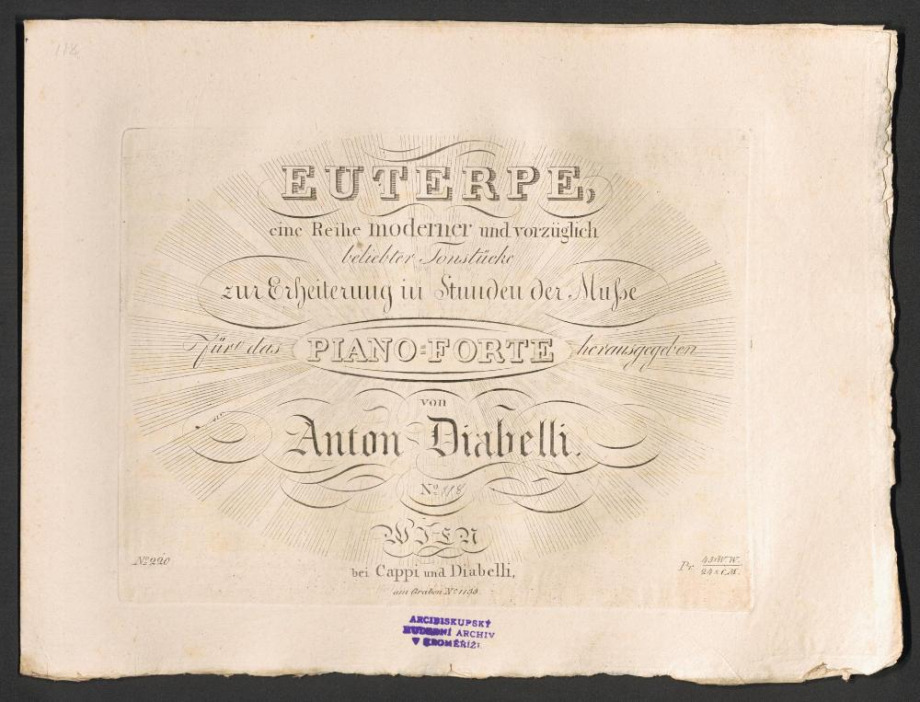 118
EUTERPE,
eine Reihe moderner und vorzüglich
beliebter Tonstücke
zur Erheiterung in Stunden der Muſse
Für das PIANO=FORTE herausgegeben
von
Anton Diabelli.
No. 118
WIEN
bei Cappi und Diabelli,
am Graben No. 1133.
No. 220
Pr.
ARCIBISKUPSKÝ
HUDEBNÍ ARCHIV
V KROMĚŘÍŽI.